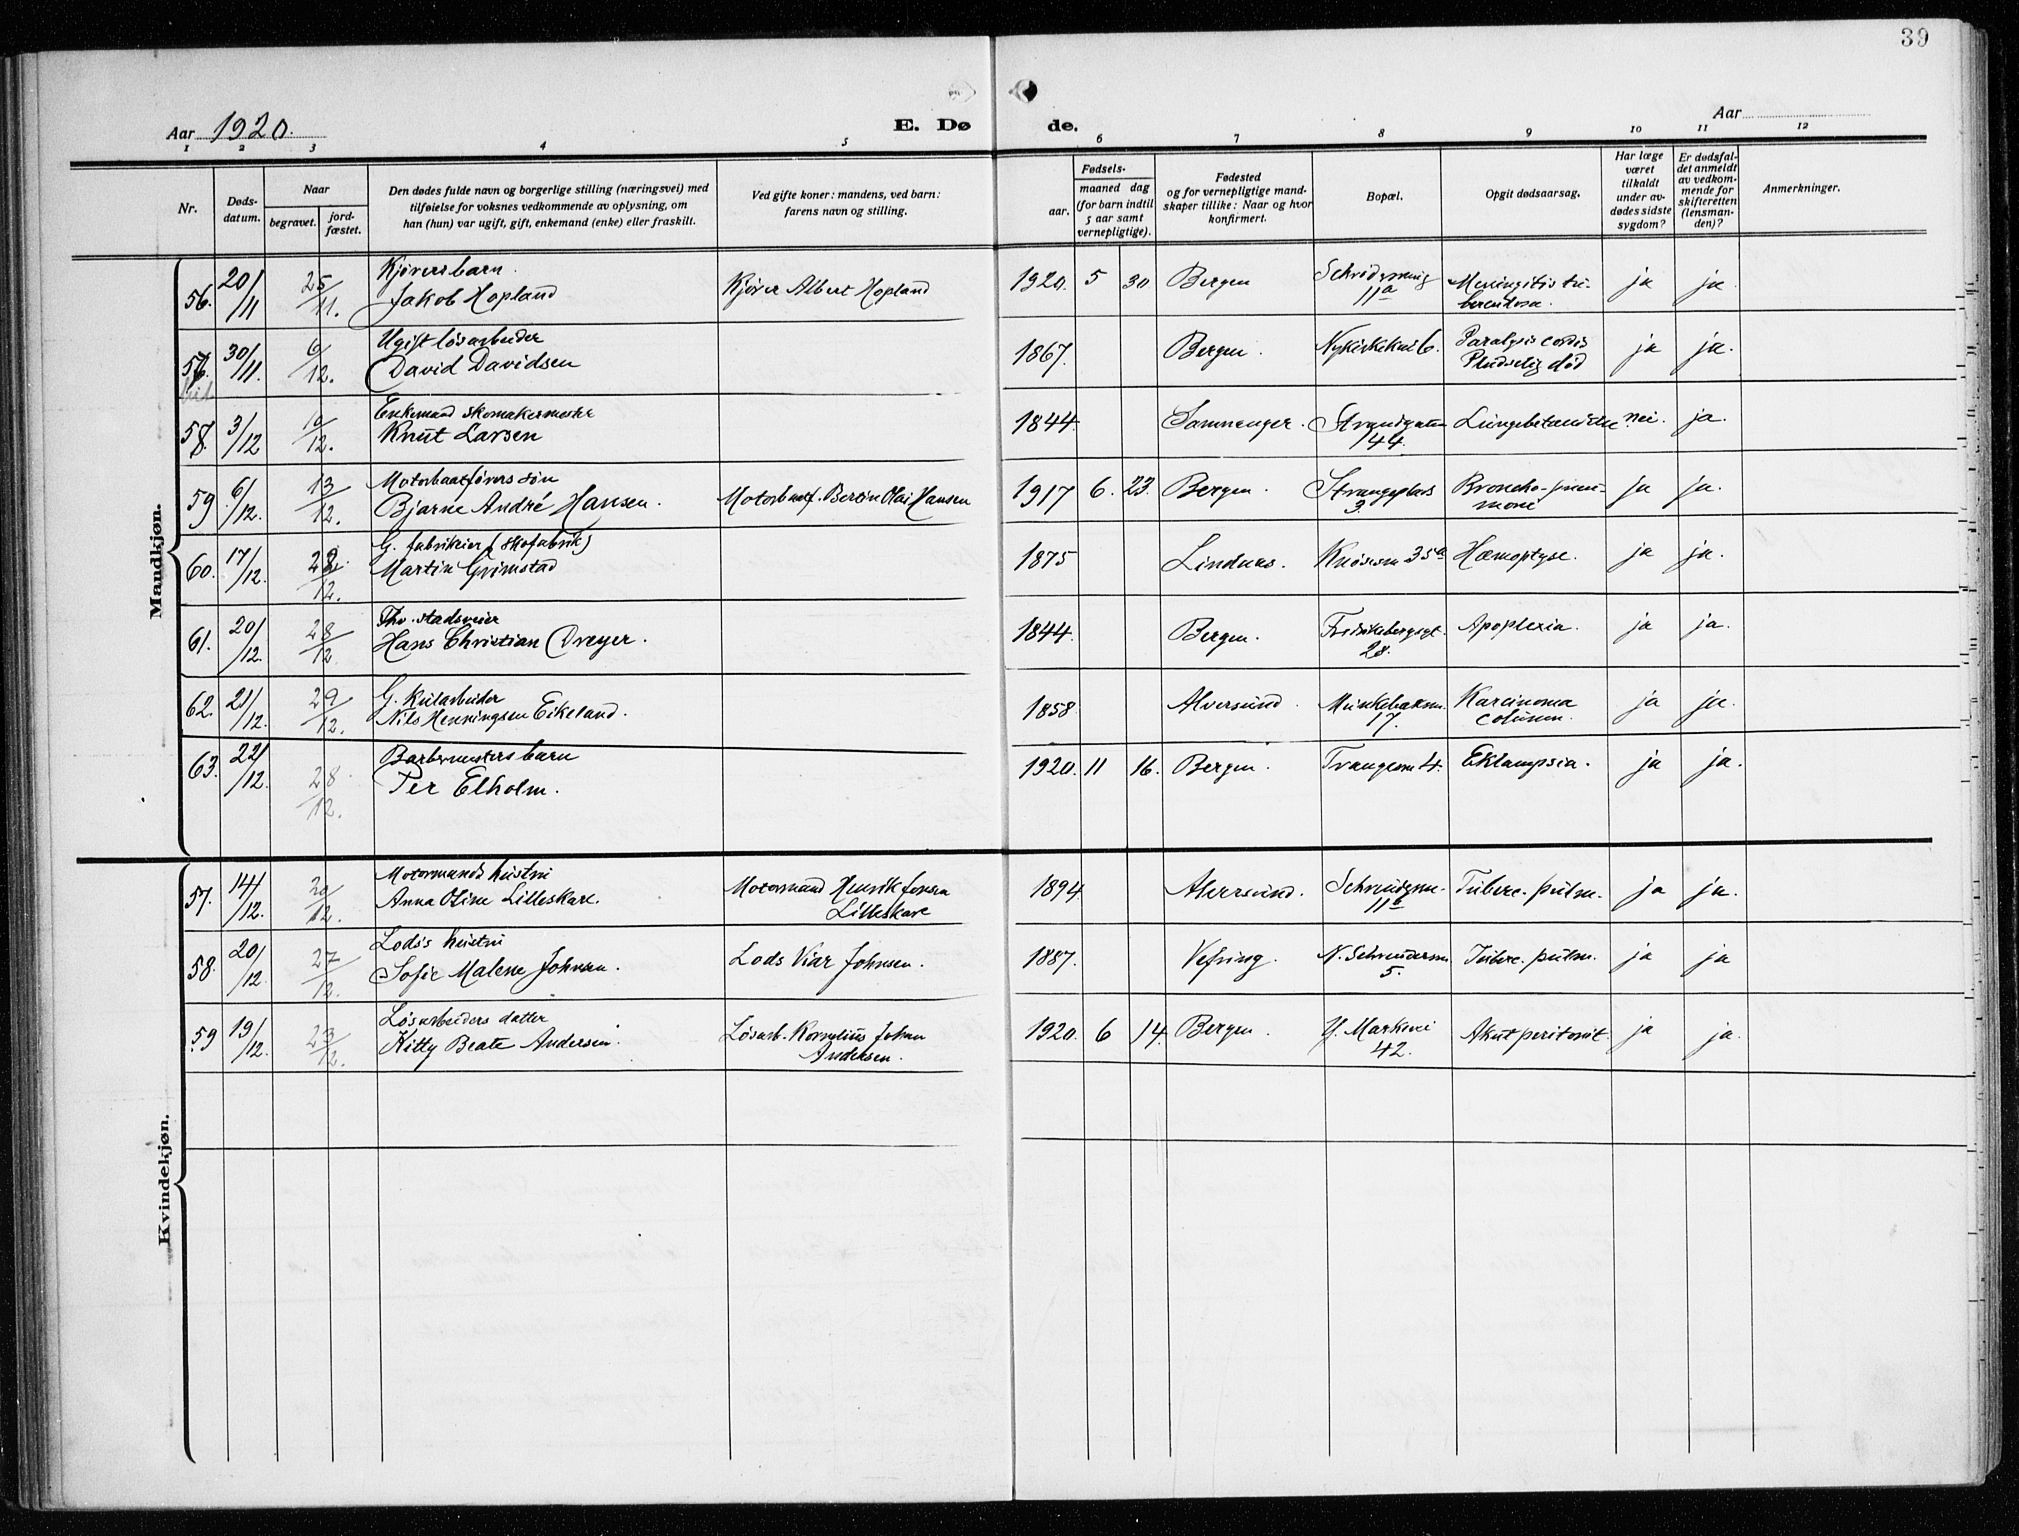 39
Aar 1920.
E. Dø
de.
Aar
1 2 3 4 5 6 7 8 9 10 11 12
Nr.
Døds-
datum.
Naar
begravet.
jord-
fæstet.
Den dødes fulde navn og borgerlige stilling (næringsvei) med
tilføielse for voksnes vedkommende av oplysning, om
han (hun) var ugift, gift, enkemand (enke) eller fraskilt.
Ved gifte koner: mandens, ved barn:
farens navn og stilling.
Fødsels-
aar.
maaned dag
(for barn indtil
5 aar samt
vernepligtige).
Fødested
og for vernepligtige mand-
skaper tillike: Naar og hvor
konfirmert.
Bopæl.
Opgit dødsaarsag.
Har læge
været
tilkaldt
under av-
dødes sidste
sygdom?
Er dødsfal-
det anmeldt
av vedkom-
mende for
skifteretten
(lensman-
den)?
Anmerkninger.
Mandkjøn.
56. 20/11 25/11. Kjørers barn.
Jakob Hopland
Kjører Albert Hopland
1920. 5 30 Bergen
11a
Meningitis tu-
berculosa.
ja ja.
57. 30/11. 6/12. Ugift løsarbeider
David Davidsen
1867. Bergen. 6. Paralysis cordis
Pludselig død
ja ja.
58. 3/12 10/12. Enkemand skomakermester
Knut Larsen
1844. Samnanger. Strandgaten
44.
nei. ja.
59. 6/12. 13/12. Motorbaatførers søn
Bjarne André Hansen.
Motorbaatf. Bertin Olai Hansen
1917 6. 23. Bergen. Strangeplads
3.
Broncho-pneu-
moni
ja ja.
60. 17/12. 22/12. G. fabrikeier (skofabrik)
Martin Grimstad
1875 Lindaas. Knøsesm 35a Hæmoptyse. ja ja.
61. 20/12. 28/12 Fhv. stadsveier
Hans Christian Dreyer.
1844. Bergen. Fredriksbergsgt.
28.
Apoplexia. ja ja.
62. 21/12. 29/12. G. kularbeider
Nils Henningsen Eikeland.
1858. Alversund.
17.
Karcinoma
ja ja.
63. 22/12. 28/12. Barbermesters barn
Per Elholm.
1920. 11 16. Bergen. Trangesm 4. Eklampsia. ja ja.
Kvindekjøn.
57. 14/12. 20/12. Motormands hustru
Anna Oline Lilleskare.
Motormand Henrik Jonsen
Lilleskare
1894. Alversund.
11b
Tuberc. pulm. ja ja.
58. 20/12 27/12. Lods's hustru
Sofie Malene Johnsen.
Lods Viar Johnsen.
1887. Vefring.
5.
Tuberc. pulm. ja ja
59 19/12. 23/12. Løsarbeiders datter
Kitty Beate Andersen.
Løsarb. Kornelius Johan
Andersen.
1920. 6 14. Bergen. Y. Markvei
42.
Akut peritonit. ja ja.